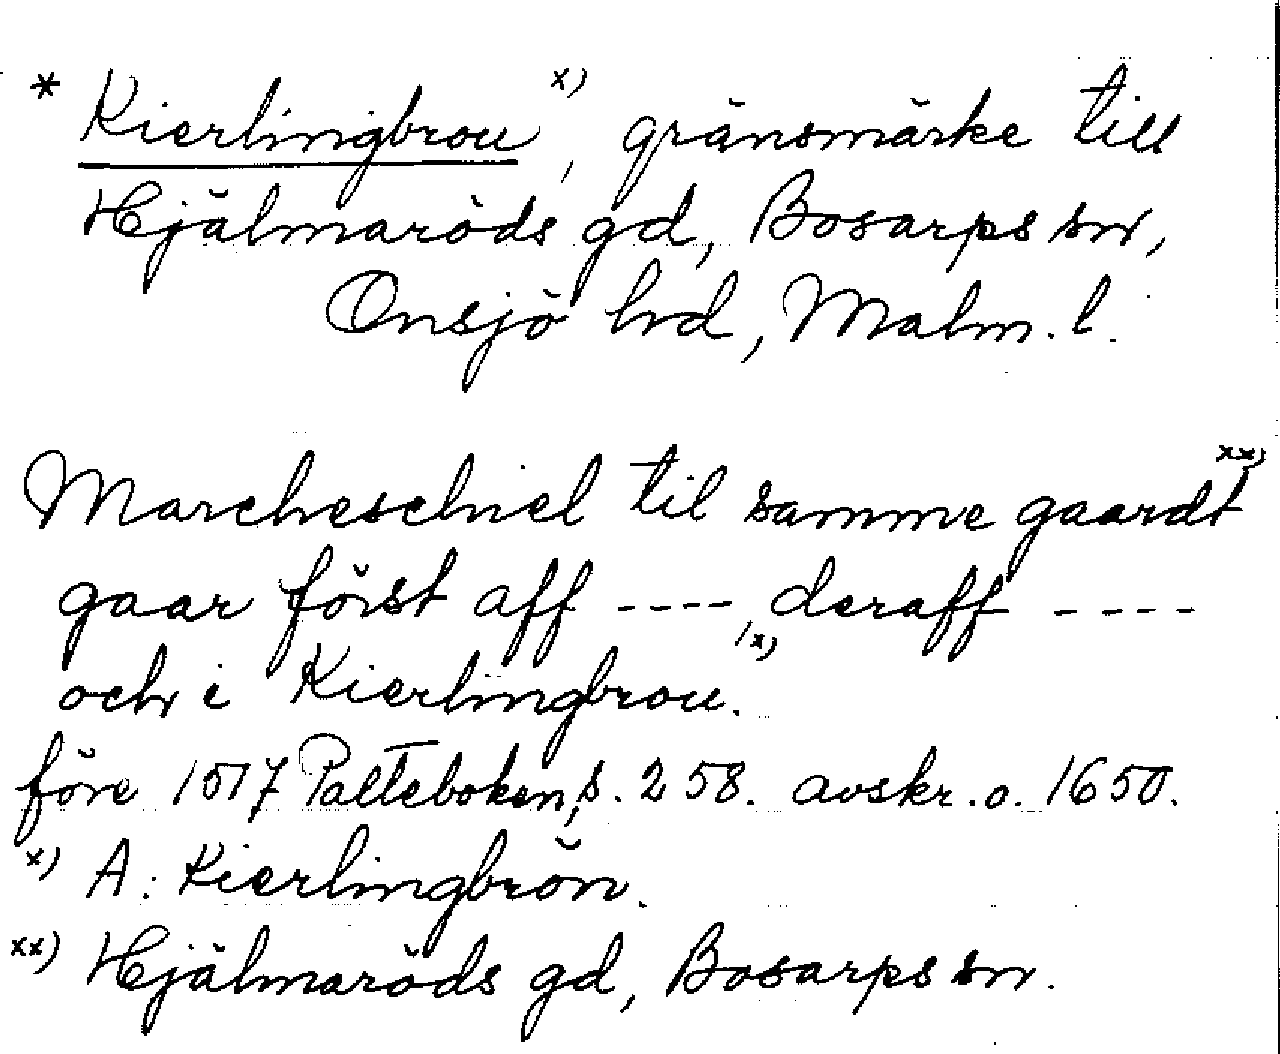 * Kierlingbrou x), gränsmärke till
Hjälmaröds gd, Bosarps sn,
Onsjö hd, Malm. l.
Marcheschiel til samme gaardt xx)
gaar först aff ----, deraff ----
och i Kierlingbrou. x)
före 1517 Palteboken, s. 258. avskr. o. 1650.
x) A: Kierlingbrön.
xx) Hjälmaröds gd, Bosarps sn.